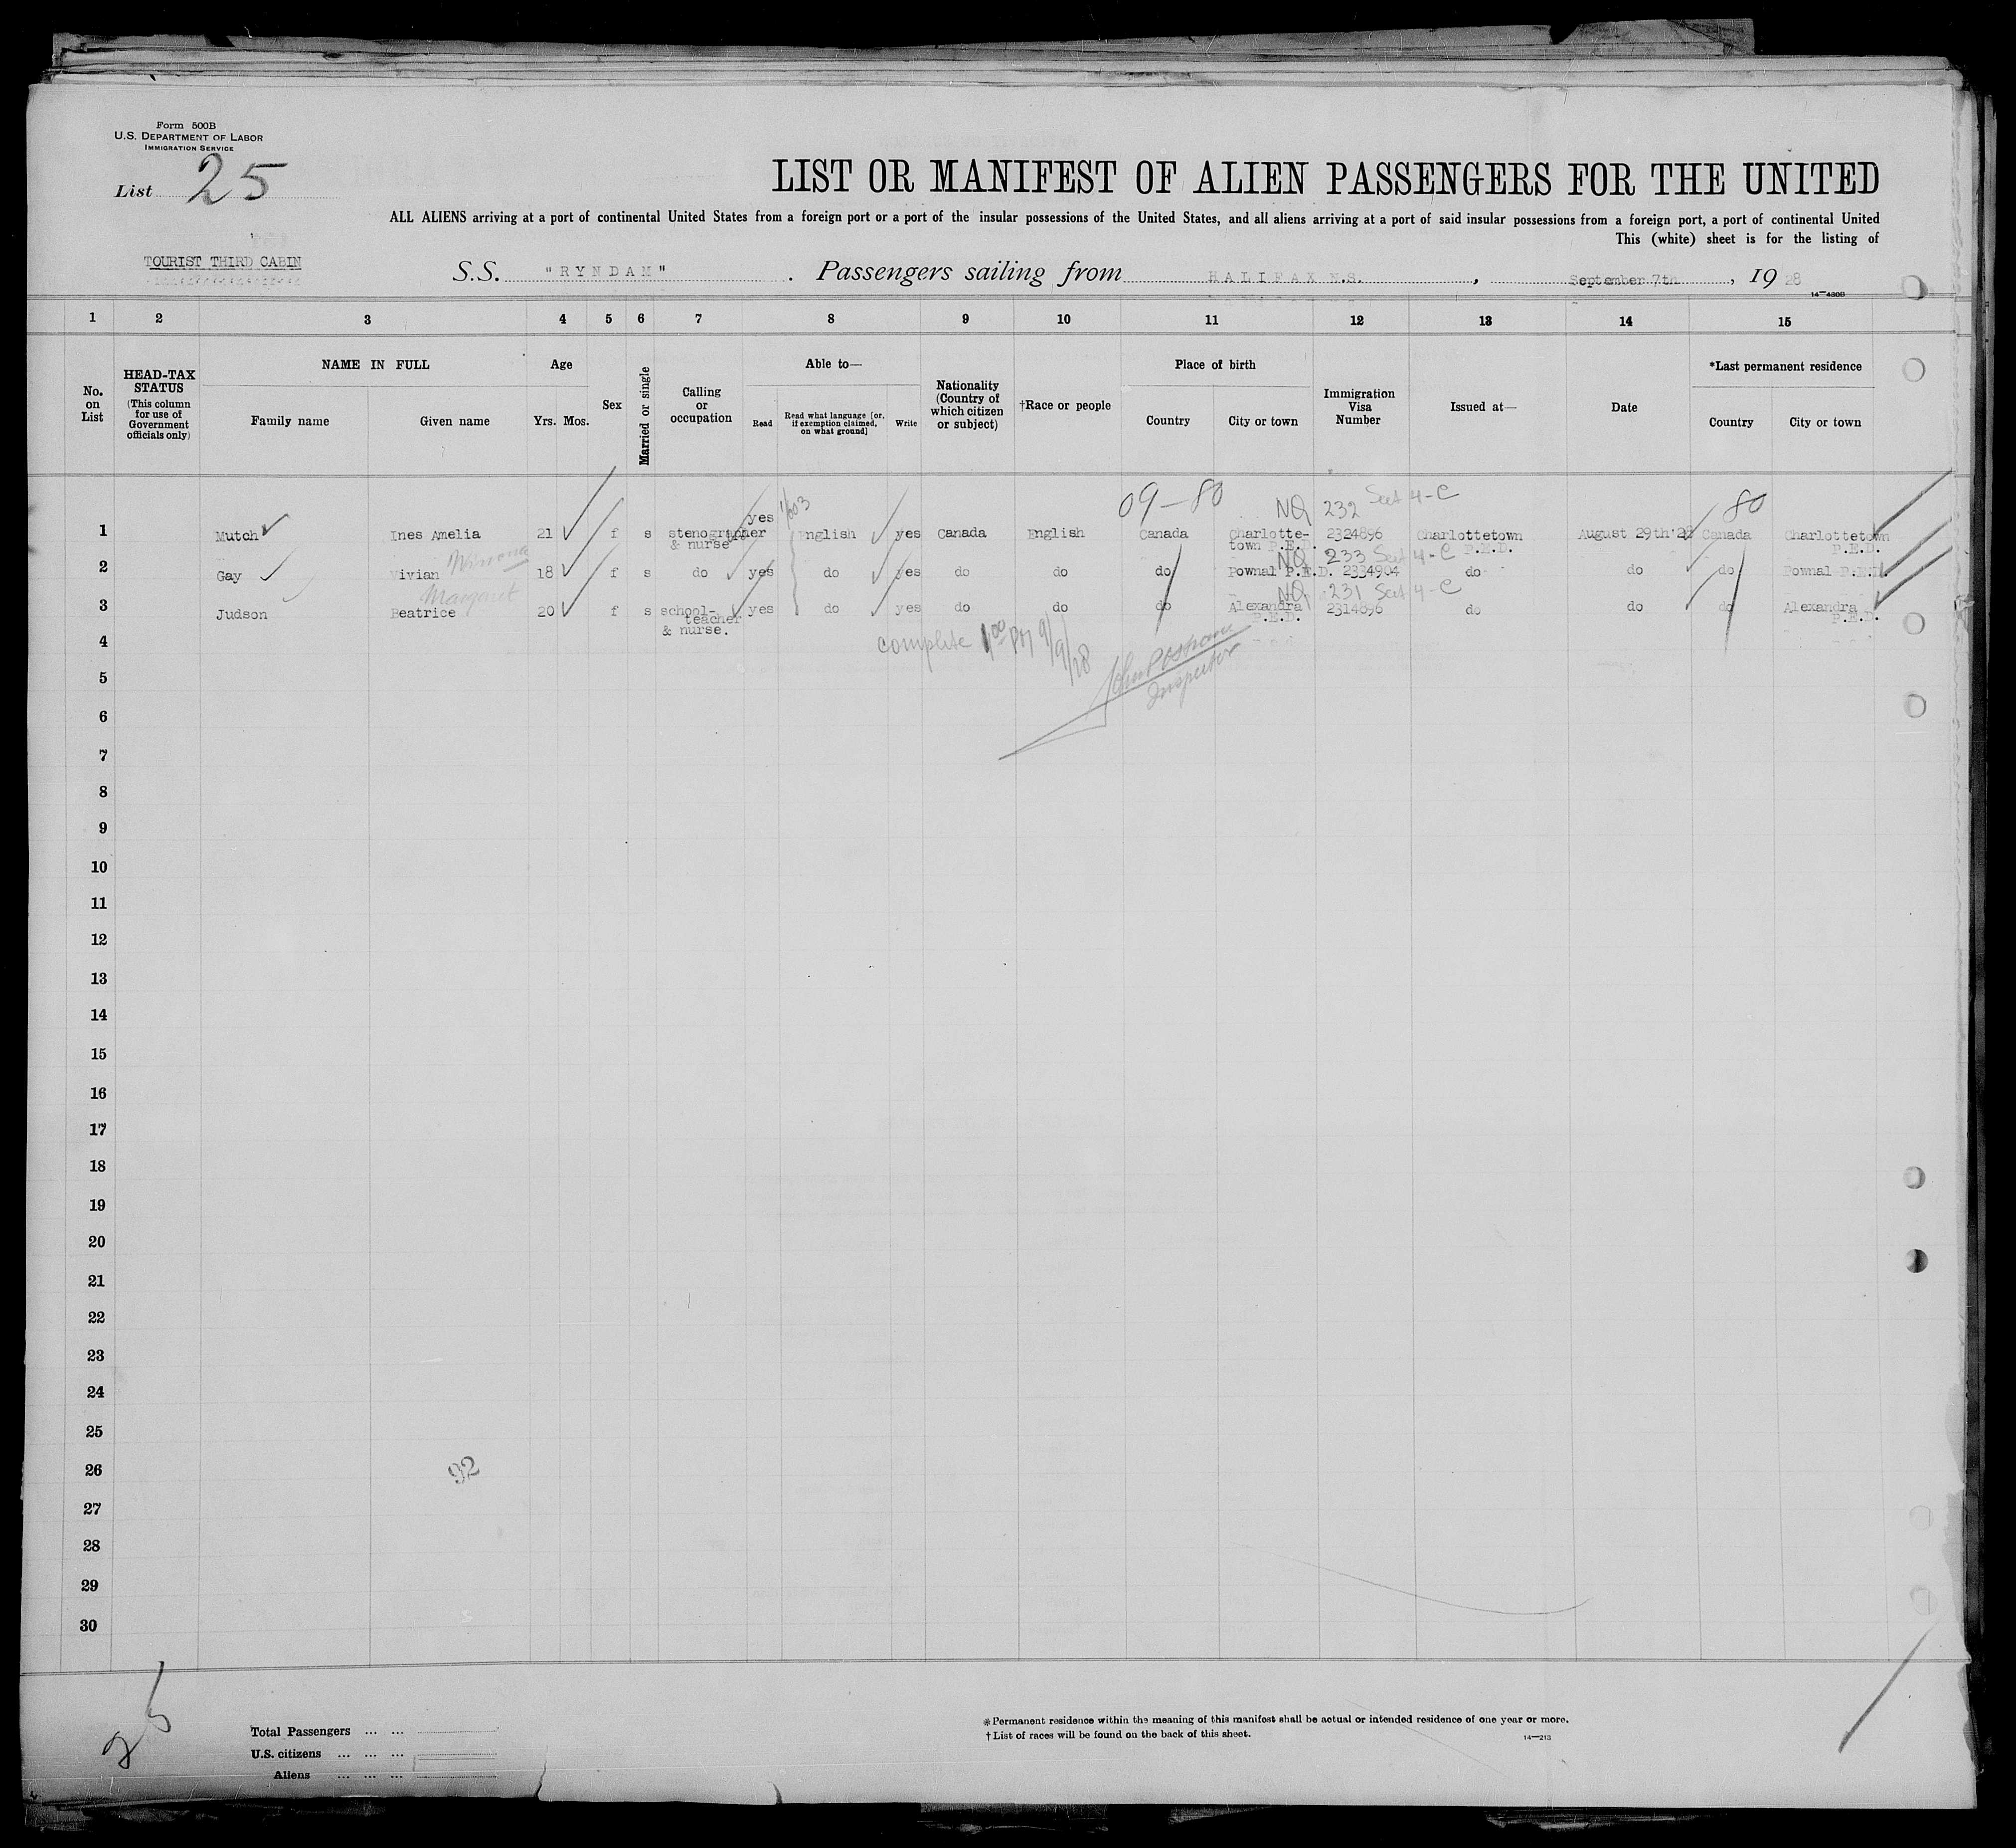 Form 500B
U.S. DEPARTMENT OF LABOR
IMMIGRATION SERVICE
List 25
LIST OR MANIFEST OF ALIEN PASSENGERS FOR THE UNITED
ALL ALIENS arriving at a port of continental United States from a foreign port or a port of the insular possessions of the United States, and all aliens arriving at a port of said insular possessions from a foreign port, a port of continental United
This (white) sheet is for the listing of
TOURIST THIRD CABIN
S.S. "RYNDAM". Passengers sailing from HALIFAX N.S., September 7th, 1928
14—430B
1 2 3 4 5 6 7 8 9 10 11 12 13 14 15
No. on List
HEAD-TAX STATUS (This column for use of Government officials only)
NAME IN FULL
Family name Given name
Age
Yrs. Mos.
Sex
Married or single
Calling or occupation
Able to—
Read
Read what language [or, if exemption claimed, on what ground]
Write
Nationality (Country of which citizen or subject)
†Race or people
Place of birth
Country City or town
Immigration Visa Number
Issued at—
Date
*Last permanent residence
Country City or town
09-80 NQ 232 Sect 4-C 80
1 Mutch Ines Amelia 21 f s stenographer & nurse yes English yes Canada English Canada Charlotte-town P.E. 2324896 Charlottetown P.E.D. August 29th'28 Canada Charlottetown P.E.D.
NQ 233 Sect 4-C
2 Gay Vivian 18 f s do yes do yes do do do Pownal P.E.D. 2334904 do do do Pownal P.E.D.
Margaret NQ 231 Sect 4-C
3 Judson Beatrice 20 f s school-teacher & nurse. yes do yes do do do Alexandra P.E.D. 2314896 do do do Alexandra P.E.D.
complete 1 00 PM 9/9/28
Inspector
4
5
6
7
8
9
10
11
12
13
14
15
16
17
18
19
20
21
22
23
24
25
26
92
27
28
29
30
25
Total Passengers ... ...
U.S. citizens ... ... ...
Aliens ... ... ...
*Permanent residence within the meaning of this manifest shall be actual or intended residence of one year or more.
†List of races will be found on the back of this sheet.
14—213